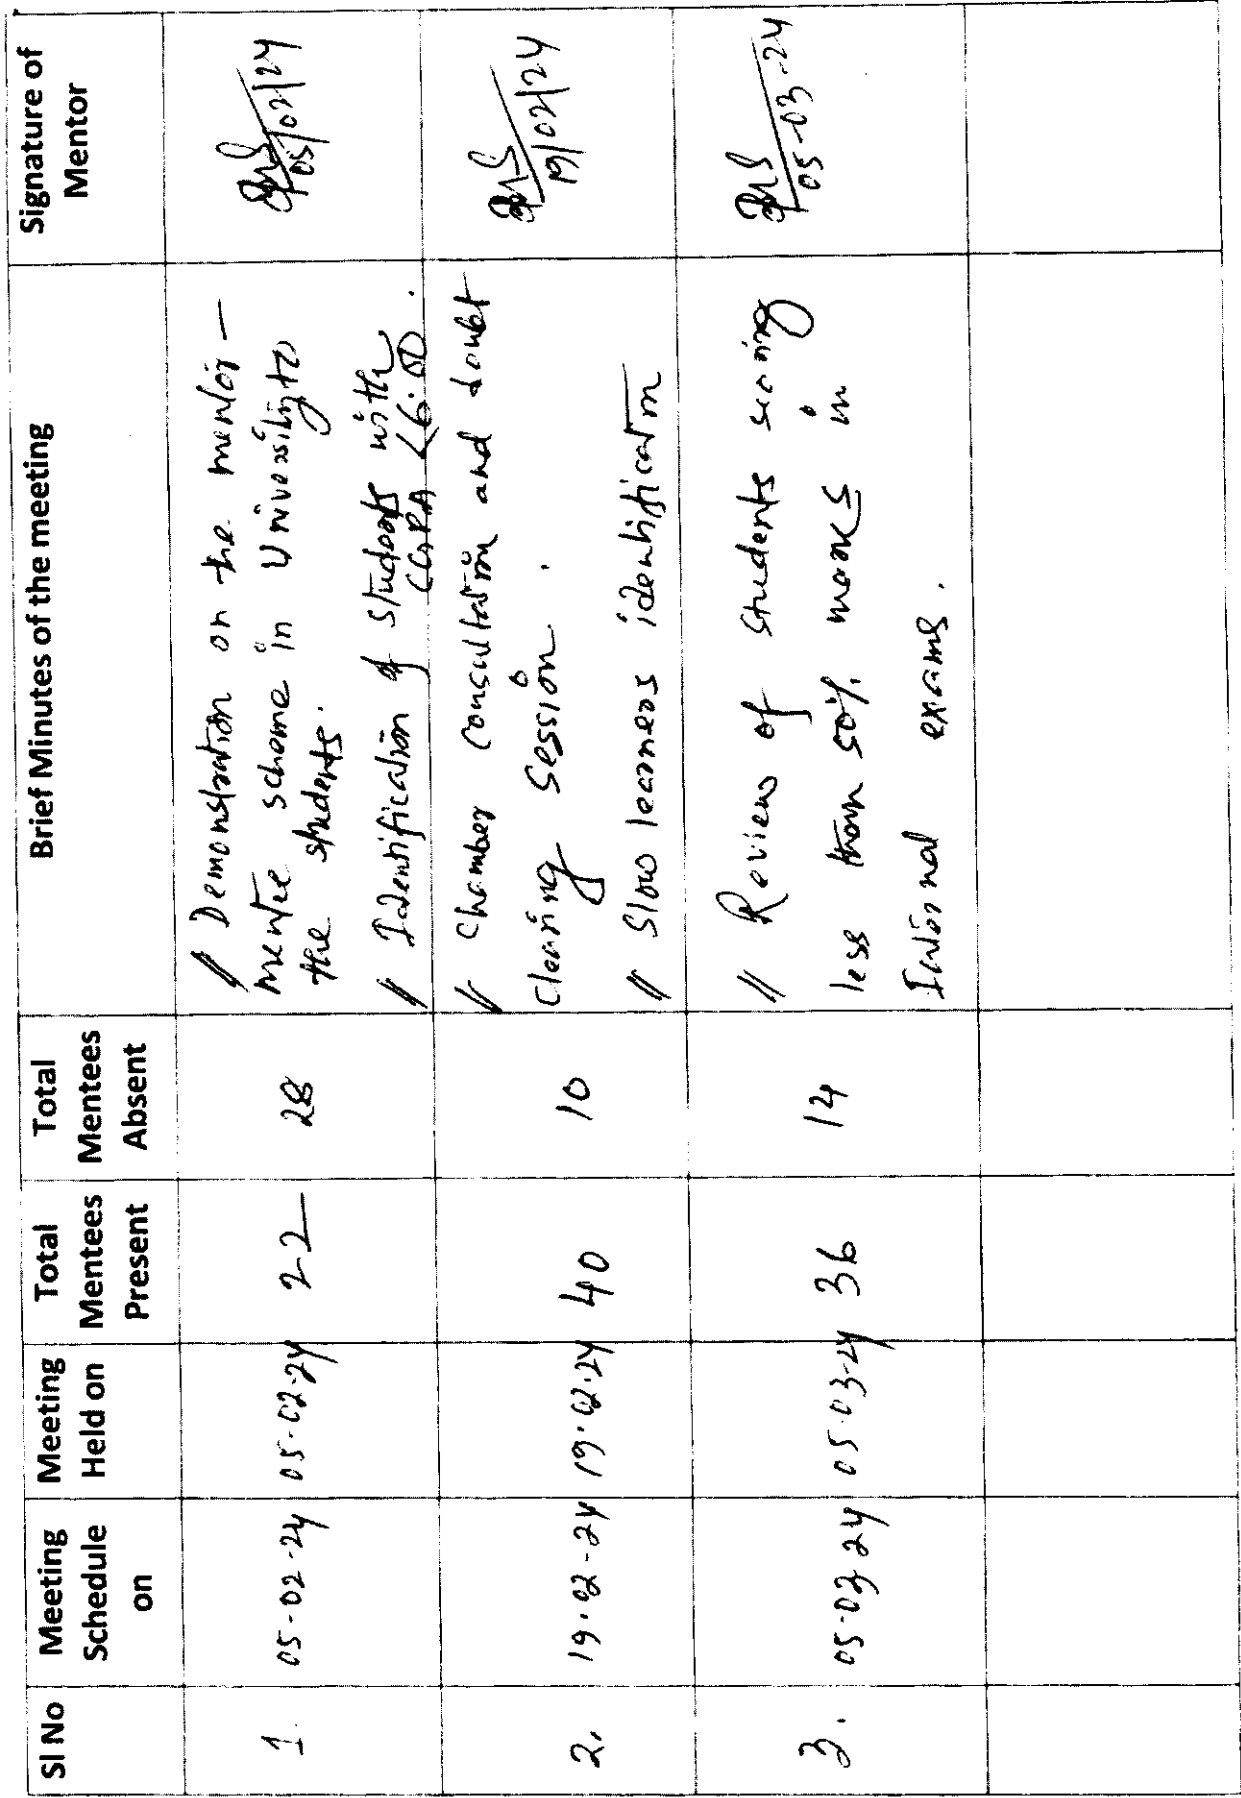 Sl No
Meeting
Schedule
on
Meeting
Held on
Total
Mentees
Present
Total
Mentees
Absent
Brief Minutes of the meeting
Signature of
Mentor
1.
05-02-24
05-02-24
22
28
// Demonstration on the mentor-
mentee scheme in University to
the students.
// Identification of students with
CGPA <6.00.
05/02/24
2.
19.02-24
19.02.24
40
10
// Chamber consultation and doubt
clearing session.
// Slow learners identification
19/02/24
3.
05-03-24
05-03-24
36
14
// Review of students scoring
less than 50% marks in
Internal exams.
05-03-24